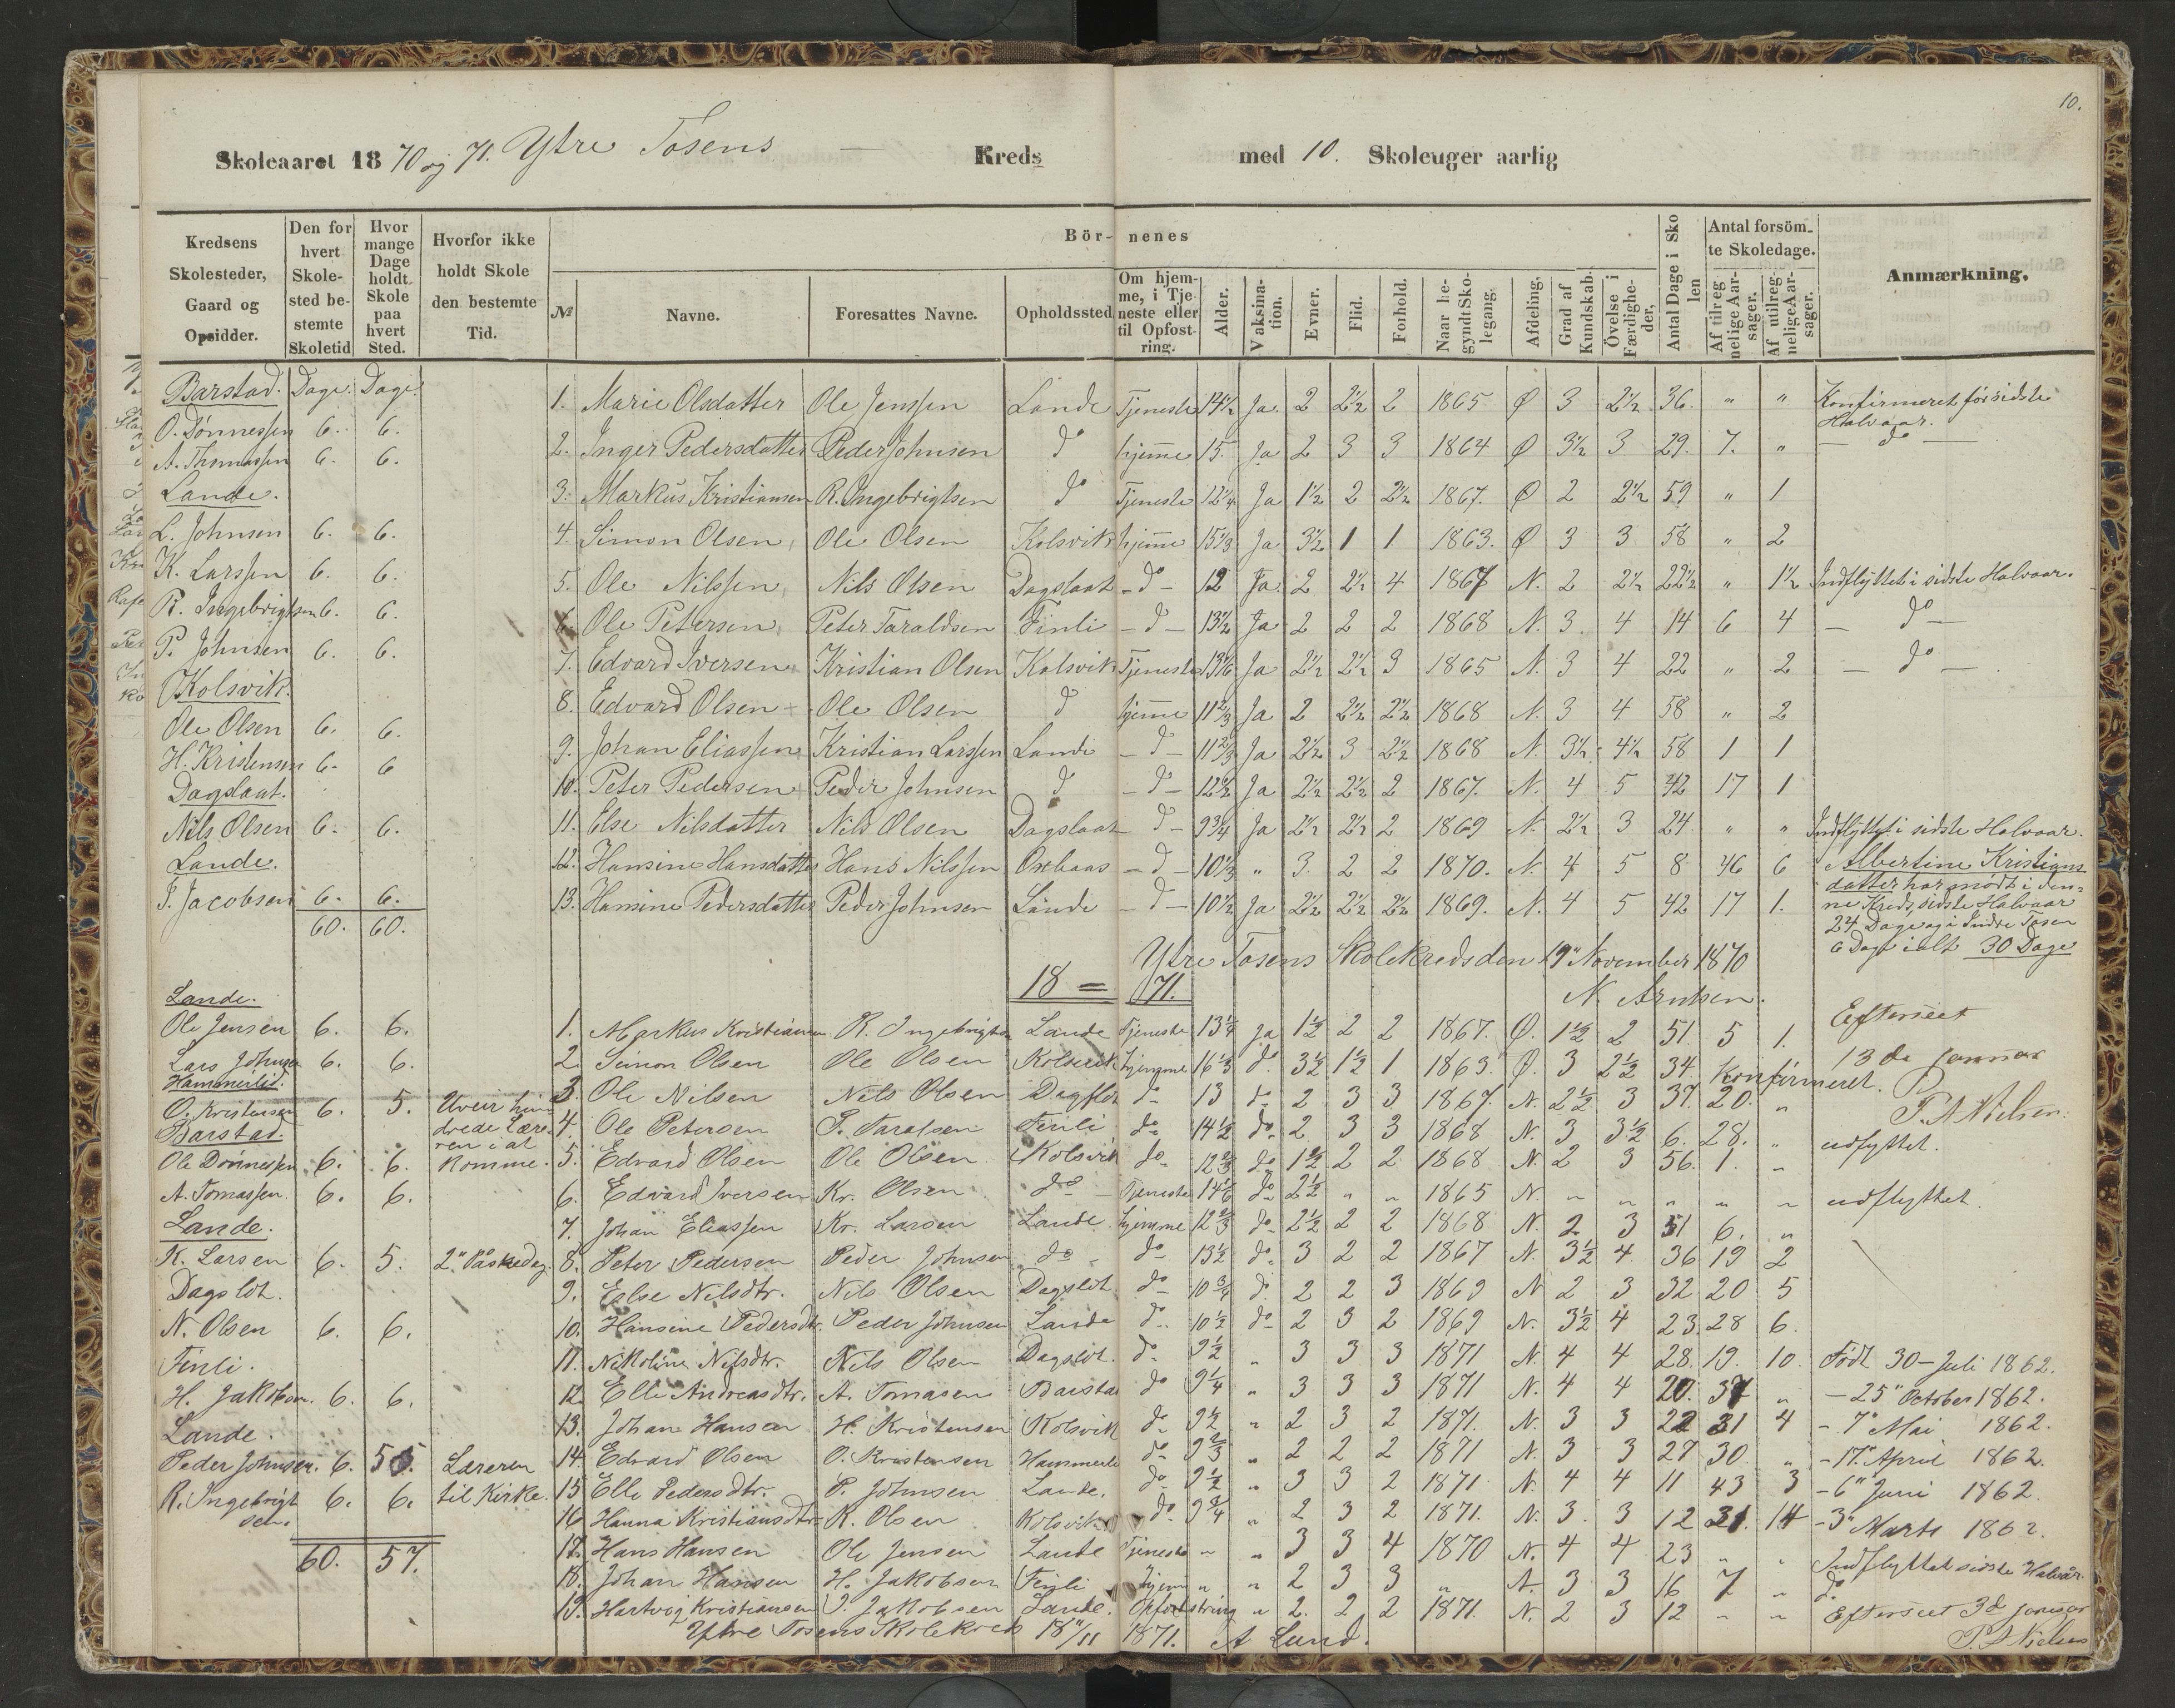 10.
Skoleaaret 1870 og 71. Ytre Tosens — Kreds med 10. Skoleuger aarlig
Kredsens Skolesteder, Gaard og Opsidder.
Den for hvert Skolested bestemte Skoletid
Hvor mange Dage holdt Skole paa hvert Sted.
Hvorfor ikke holdt Skole den bestemte Tid.
Bör- nenes
№
Navne.
Foresattes Navne.
Opholdssted
Om hjemme, i Tjeneste eller til Opfostring.
Alder.
Vaksination.
Evner.
Flid.
Forhold.
Naar begyndt Skolegang.
Afdeling.
Grad af Kundskab.
Övelse i Færdigheder,
Antal Dage i Skolen
Antal forsömte Skoledage.
Af tilregnelige Aarsager.
Af utilregnelige Aarsager.
Anmærkning.
Barstad. Dage. Dage.
O. Dønnessen 6. 6.
A. Thomassen 6. 6.
Lande.
L. Johnsen 6. 6.
K. Larssen 6. 6.
R. Ingebrigtsen 6. 6.
P. Johnsen 6. 6.
Kolsvik.
Ole Olsen 6. 6.
H. Kristensen 6. 6
Dagslaat.
Nils Olsen 6. 6.
Lande.
J. Jacobsen 6. 6.
60. 60.
1. Marie Olsdatter Ole Jenssen Lande Tjeneste 14½ Ja 2 2½ 2 1865 Ø 3 2½ 36. " " Konfirmeret før sidste Halvaar.
2. Inger Pedersdatter Peder Johnsen do hjemme 15. Ja 2 3 3 1864 Ø 3½ 3 29. 7. " — do —
3. Markus Kristiansen R. Ingebrigtsen do Tjeneste 12¼ Ja 1½ 2 2½ 1867. Ø 2 2½ 59 " 1
4. Simon Olsen Ole Olsen Kolsvik hjemme 15⅓ Ja 3½ 1 1 1863. Ø 3 3 58 " 2
5. Ole Nilssen Nils Olsen Dagslaat - do - 12 Ja 2 2½ 4 1867 N. 2 2½ 22½ " 1½ Indflyttet i sidste Halvaar.
6. Ole Petersen Peter Taraldsen Finli - do - 13½ Ja 2 2 2 1868 N. 3. 4 14 6 4 — do —
7. Edvard Iversen Kristian Olsen Kolsvik Tjeneste 13⅙ Ja 2½ 2½ 3 1865 N. 3 4 22 " 2 — do —
8. Edvard Olsen Ole Olsen do hjemme 11⅔ Ja 2 2½ 2½ 1868 N. 3 4 58 " 2
9. Johan Eliassen Kristian Larssen Lande - do - 11⅔ Ja 2½ 3 2½ 1868 N. 3½ 4½ 58 1 1
10. Peter Pedersen Peder Johnsen do - do - 12½ Ja 2½ 2½ 2 1867. N. 4 5 42 17 1
11. Else Nilsdatter Nils Olsen Dagslaat - do - 9¾ Ja 2½ 2½ 2 1869 N. 2½ 3 24 " " Indflyttet i sidste Halvaar.
12. Hansine Hansdatter Hans Nilssen Oxbaas - do - 10⅓ " 3 2 2 1870. N. 4 5 8 46 6
13. Hansine Pedersdatter Peder Johnsen Lande - do - 10½ Ja 2½ 2½ 2½ 1869. N. 4 5 42 17 1.
Albertine Kristians
datter har mødt i den=
ne Kreds, sidste Halvaar
24 Dage og i Indre Tosen
6 Dage ialt 30 Dage
Ytre Tosens Skolekreds den 19" November 1870
N. Arntsen.
18 = 71.
Efterseet
13 de Januar
P. A Nielsen.
Lande.
Ole Jensen 6. 6.
Lars Johnsen 6. 6.
Hammerlid.
O. Kristensen 6. 5. Uveir hindrede Læreren i at komme.
Barstad.
Ole Dønnessen 6. 6.
A. Tomassen. 6. 6.
Lande.
K. Larsen 6. 5. 2" Påskedag.
Dagslot.
N. Olsen 6. 6.
Finli.
H. Jakobsen. 6. 6.
Lande.
Peder Johnsen. 6. 5. Læreren til Kirke.
R. Ingebrigtsen. 6. 6.
60. 57.
1. Markus Kristiansen R. Ingebrigtsen Lande Tjeneste 13¼ ja 1½ 2 2 1867. Ø. 1½ 2 51. 5 1.
2. Simon Olsen Ole Olsen Kolsvik hjemme 16⅓ do. 3½ 1½ 1 1863. Ø. 3 2½ 34. Konfirmeret.
3. Ole Nilsen Nils Olsen Dagslot do 13 do 2 3 3 1867. N. 2½ 3 37. 20. "
4. Ole Petersen P. Taralsen Finli do 14½ do 2 3 3 1868 N. 3 3½ 6. 28. " udflyttet.
5. Edvard Olsen Ole Olsen Kolsvik do 12⅔ do 1½ 2 2 1868 N. 2 3 56. 1. "
6. Edvard Iversen Kr. Olsen do Tjeneste 14⅙ do 2½ " " 1865 N. " " " " " udflyttet.
7. Johan Eliassen Kr. Larsen Lande hjemme 12⅔ do 2½ 2 2 1868 N. 2 3 51 6. "
8. Peter Pedersen Peder Johnsen do do 13½ do 3 2 2 1867 N. 3½ 4 36 19 2
9. Else Nilsdtr. Nils Olsen Dagslot do 10¾ do 2 2 3 1869 N 2 3 32 20 5
10. Hansine Pedersdtr. Peder Johnsen Lande do 10½ do 2 3 2 1869 N. 3½ 4 23. 28 6.
11. Nikoline Nilsdtr. Nils Olsen Dagslot. do 9½ " 3 3 3 1871 N. 4 4 28. 19. 10. Født 30 - Juli 1862.
12. Elli Andreasdtr. A. Tomasen Barstad do 9¼ " 3 3 3 1871 N. 4 4 20. 37 " - 25" October 1862.
13. Johan Hansen H. Kristensen Kolsvik do 9½ " 2 3 2 1871. N. 3 3 22 31 4 - 7" Mai 1862.
14. Edvard Olsen O. Kristensen Hammerli do 9⅔ " 2 2 2 1871 N. 3 3 27 30 " - 17" April 1862.
15 Elli Pedersdtr. P. Johnsen Lande. do 9½ " 3 3 2 1871. N. 4 4 11 43 3 - 6" Juni 1862.
16 Hanna Kristiansdtr. K. Olsen Kolsvik do 9¾ " 2 3 2 1871. N. 3 3 12 31. 14 - 3" Marts 1862.
17. Hans Hansen Ole Jensen Lande Tjeneste " " 3 3 4 1870 N. 4 4 23 " " Indflyttet sidste Halvår.
18. Johan Hansen H. Jakobsen Finli hjem " " 2 3 3 " N. 3 3 16 7 " do
19. Hartvig Kristiansen J. Jakobsen Lande. Opfostring " 2. 2 2 1871. N. 2 3 12 " "
Ytre Tosens Skolekreds 18"/11 1871. A Lund.
Efterseet 3d Januar
P. A Nielsen